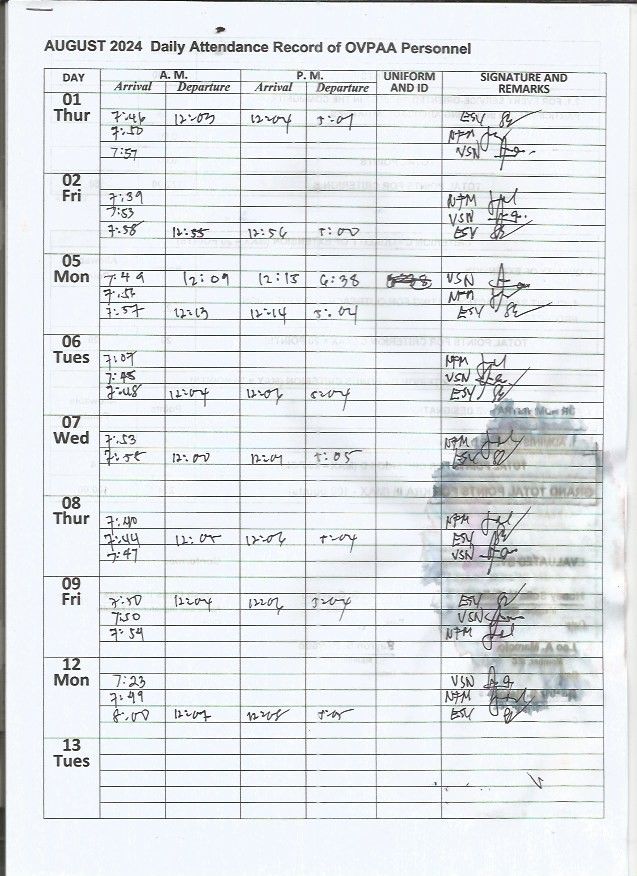 AUGUST 2024 Daily Attendance Record of OVPAA Personnel
DAY A. M. P. M. UNIFORM AND ID SIGNATURE AND REMARKS
Arrival Departure Arrival Departure
01 Thur
7:46 12:03 12:04 5:07 ESY
7:50 NFM
7:57 VSN
02 Fri
7:39 NFM
7:53 VSN
7:58 12:55 12:56 5:00 ESY
05 Mon
7:49 12:09 12:13 6:38 VSN
NFM
7:57 12:13 12:14 5:04 ESY
06 Tues
7:07 NFM
7:48 VSN
7:48 12:04 ESY
07 Wed
7:53 NFM
7:58 12:00 12:01 5:05 ESY
08 Thur
7:40 NFM
7:44 5:04 ESY
7:47 VSN
09 Fri
7:50 12:04 5:04 ESY
7:50 VSN
7:54 NFM
12 Mon
7:23 VSN
7:49 NFM
8:00 12:07 12:08 ESY
13 Tues